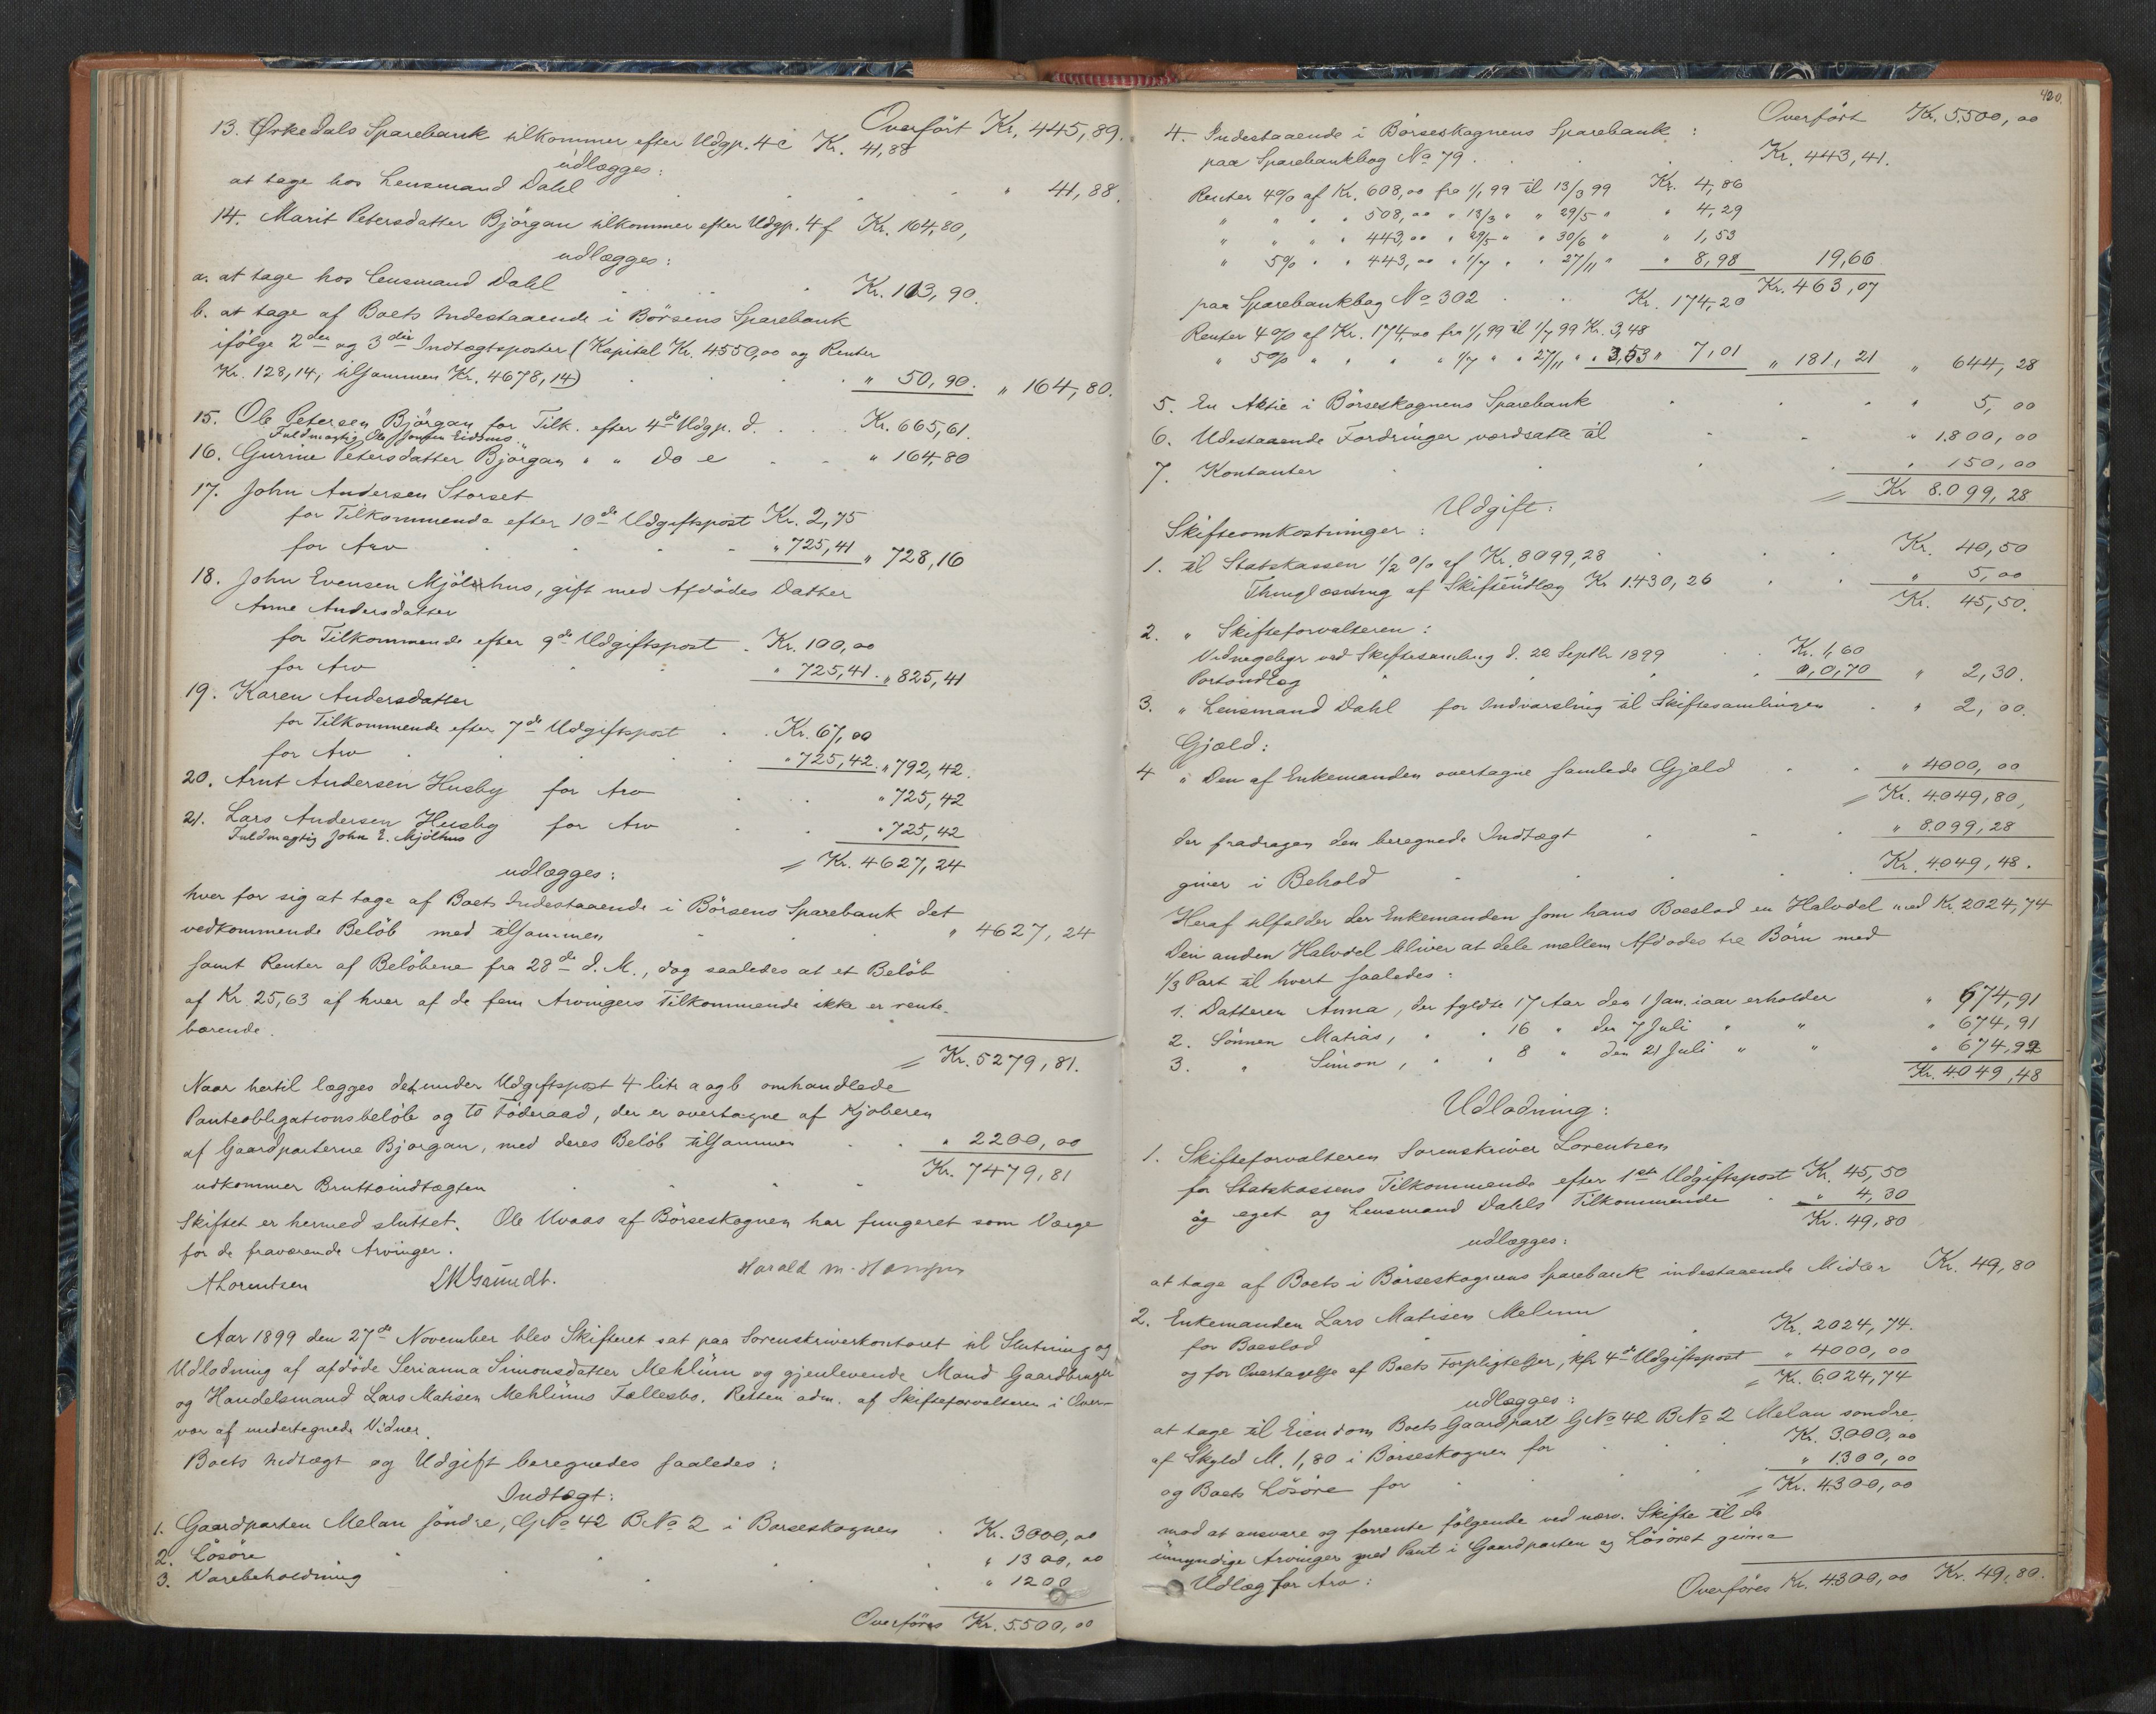 Overført Kr. 445,89.
13. Ørkedals Sparebank tilkommer efter Udgp. 4 c Kr. 41,88
udlægges:
at tage hos Lensmand Dahl . . . " 41,88.
14. Marit Petersdatter Bjørgan tilkommer efter Udgp. 4 f Kr. 164,80,
udlægges:
a. at tage hos Lensmand Dahl . . . Kr. 113,90.
b. at tage af Boets Indestaaende i Børsens Sparebank
ifølge 2den og 3die Indtægtsposter (Kapital Kr. 4550,00 og Renter
Kr. 128,14, tilsammen Kr. 4678,14) . . . " 50,90. " 164,80.
15. Ole Petersen Bjørgan for Tilk. efter 4de Udgp. d. . . Kr. 665,61.
Fuldmægtig Ole Jonsen Eidsmo
16. Gurine Petersdatter Bjørgan " " Do e . . " 164,80
17. John Andersen Storset
for Tilkommende efter 10de Udgiftspost Kr. 2,75
for Arv . . . " 725,41 " 728,16
18. John Evensen Mjølhus, gift med Afdødes Datter
Anne Andersdatter
for Tilkommende efter 9de Udgiftspost . Kr. 100,00
for Arv . . " 725,41. " 825,41
19. Karen Andersdatter
for Tilkommende efter 7de Udgiftspost . . Kr. 67,00
for Arv . . . " 725,42. " 792,42.
20. Arnt Andersen Husby for Arv . . " 725,42
21. Lars Andersen Husby for Arv . . " 725,42
Fuldmægtig John E. Mjølhus
= Kr. 4627,24
udlægges:
hver for sig at tage af Boets Indestaaende i Børsens Sparebank det
vedkommende Beløb med tilsammen . . " 4627,24
samt Renter af Beløbene fra 28de d. M., dog saaledes at et Beløb
af Kr. 25,63 af hver af de fem Arvingers Tilkommende ikke er rente-
bærende.
= Kr. 5279,81.
Naar hertil lægges det under Udgiftspost 4 litr a og b omhandlede
Panteobligationsbeløb og to Føderaad, der er overtagne af Kjøberen
af Gaardparterne Bjørgan, med deres Beløb tilsammen . . " 2200,00
udkommer Bruttoindtægten . . . Kr. 7479,81
Skiftet er hermed sluttet. Ole Uvaas af Børseskognen har fungeret som Værge
for de fraværende Arvinger.
A Lorentsen Grundt. Harald M.
Aar 1899 den 27de November blev Skifteret sat paa Sorenskriverkontoret til Slutning og
Udlodning af afdøde Serianna Simonsdatter Mehlum og gjenlevende Mand Gaardbruger
og Handelsmand Lars Matisen Mehlums Fællesbo. Retten adm. af Skifteforvalteren i Over-
vær af undertegnede Vidner.
Boets Indtægt og Udgift beregnedes saaledes:
Indtægt:
1. Gaardparten Melan søndre, GNo 42 BNo 2 i Børseskognen . Kr. 3000,00
2. Løsøre . . . " 1300,00
3. Varebeholdning . . . " 1200
Overføres Kr. 5500,00
420.
Overført Kr. 5500,00
4. Indestaaende i Børseskognens Sparebank :
paa Sparebankbog No 79 . . . Kr. 443,41.
Renter 4% af Kr. 608,00 fra 1/1 99 til 13/3 99 Kr. 4,86
" " " " 508,00 " 13/3 " " 29/5 " " 4,29
" " " " 443,00 " 29/5 " " 30/6 " " 1,53
" 5% " " 443,00 " 1/7 " " 27/11 " " 8,98 19,66
Kr. 463,07
paa Sparebankbog No 302 . . Kr. 174,20
Renter 4% af Kr. 174,00 fra 1/1 99 til 1/7 99 Kr. 3,48
" 5% " " " " 1/7 " " 27/11 " " 3,53 " 7,01 " 181,21 " 644,28
5. En Aktie i Børseskognens Sparebank . . . " 5,00
6. Udestaaende Fordringer værdsatte til . . " 1.800,00
7. Kontanter . . . " 150,00
= Kr 8.099,28
Udgift:
Skifteomkostninger :
1. til Statskassen 1/2 % af Kr. 8099,28 . . . Kr. 40,50
Thinglæsning af Skifteudlæg Kr 1.430,26 . . " 5,00
Kr. 45,50.
2. " Skifteforvalteren :
Vidnegebyr ved Skiftesamling d. 22 Septbr 1899 . . Kr. 1,60
Portoudlæg . . . " 0,70 " 2,30.
3. " Lensmand Dahl for Indvarsling til Skiftesamlingen . " 2,00.
Gjæld:
4 " Den af Enkemanden overtagne samlede Gjæld . . " 4000,00
= Kr. 4.049,80,
der fradragen den beregnede Indtægt . . " 8.099,28
giver i Behold . . . Kr. 4.049,48.
Heraf tilfalder der Enkemanden som hans Boeslod en Halvdel med Kr. 2024,74
Den anden Halvdel bliver at dele mellem Afdødes tre Børn med
1/3 Part til hvert saaledes :
1. Datteren Anna, der fyldte 17 Aar den 1 Jan. iaar erholder " 674,91
2. Sønnen Matias, " " 16 " den 7 Juli " " " 674,91
3. " Simon, " " 8 " den 21 Juli " " " 674,92
Kr. 4.049,48
Udlodning:
1. Skifteforvalteren Sorenskriver Lorentsen
for Statskassens Tilkommende efter 1ste Udgiftspost Kr. 45,50
og eget og Lensmand Dahls Tilkommende . " 4,30
Kr. 49,80
udlægges:
at tage af Boets i Børseskognens Sparebank indestaaende Midler Kr. 49,80
2. Enkemanden Lars Matisen Melum
for Boeslod . . . Kr. 2024,74.
og for Overtagelse af Boets Forpligtelser, kfr 4de Udgiftspost " 4000,00
= Kr. 6.024,74
udlægges:
at tage til Eiendom Boets Gaardpart GNo 42 BNo 2 Melan søndre
af Skyld M. 1,80 i Børseskognen for . . Kr. 3.000,00
og Boets Løsøre for . . " 1300,00
= Kr. 4.300,00
mod at ansvare og forrente følgende ved nærv. Skifte til de
umyndige Arvinger med Pant i Gaardparten og Løsøret givne
Udlæg for Arv :
Overføres Kr. 4.300,00 Kr. 49,80.